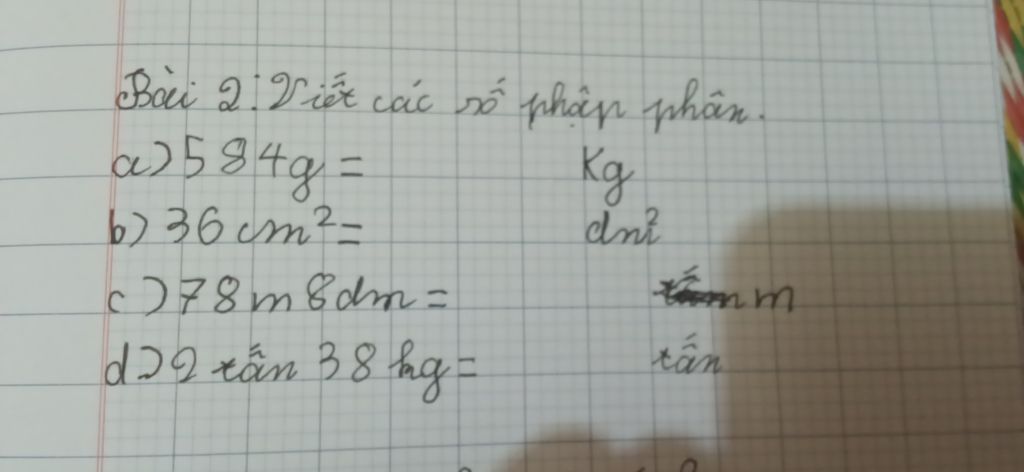 Bài 2: Viết các số phập phân.
a) 584g = Kg
b) 36 cm² = dm²
c) 78m 8dm = m
d) 2 tấn 38 kg = tấn